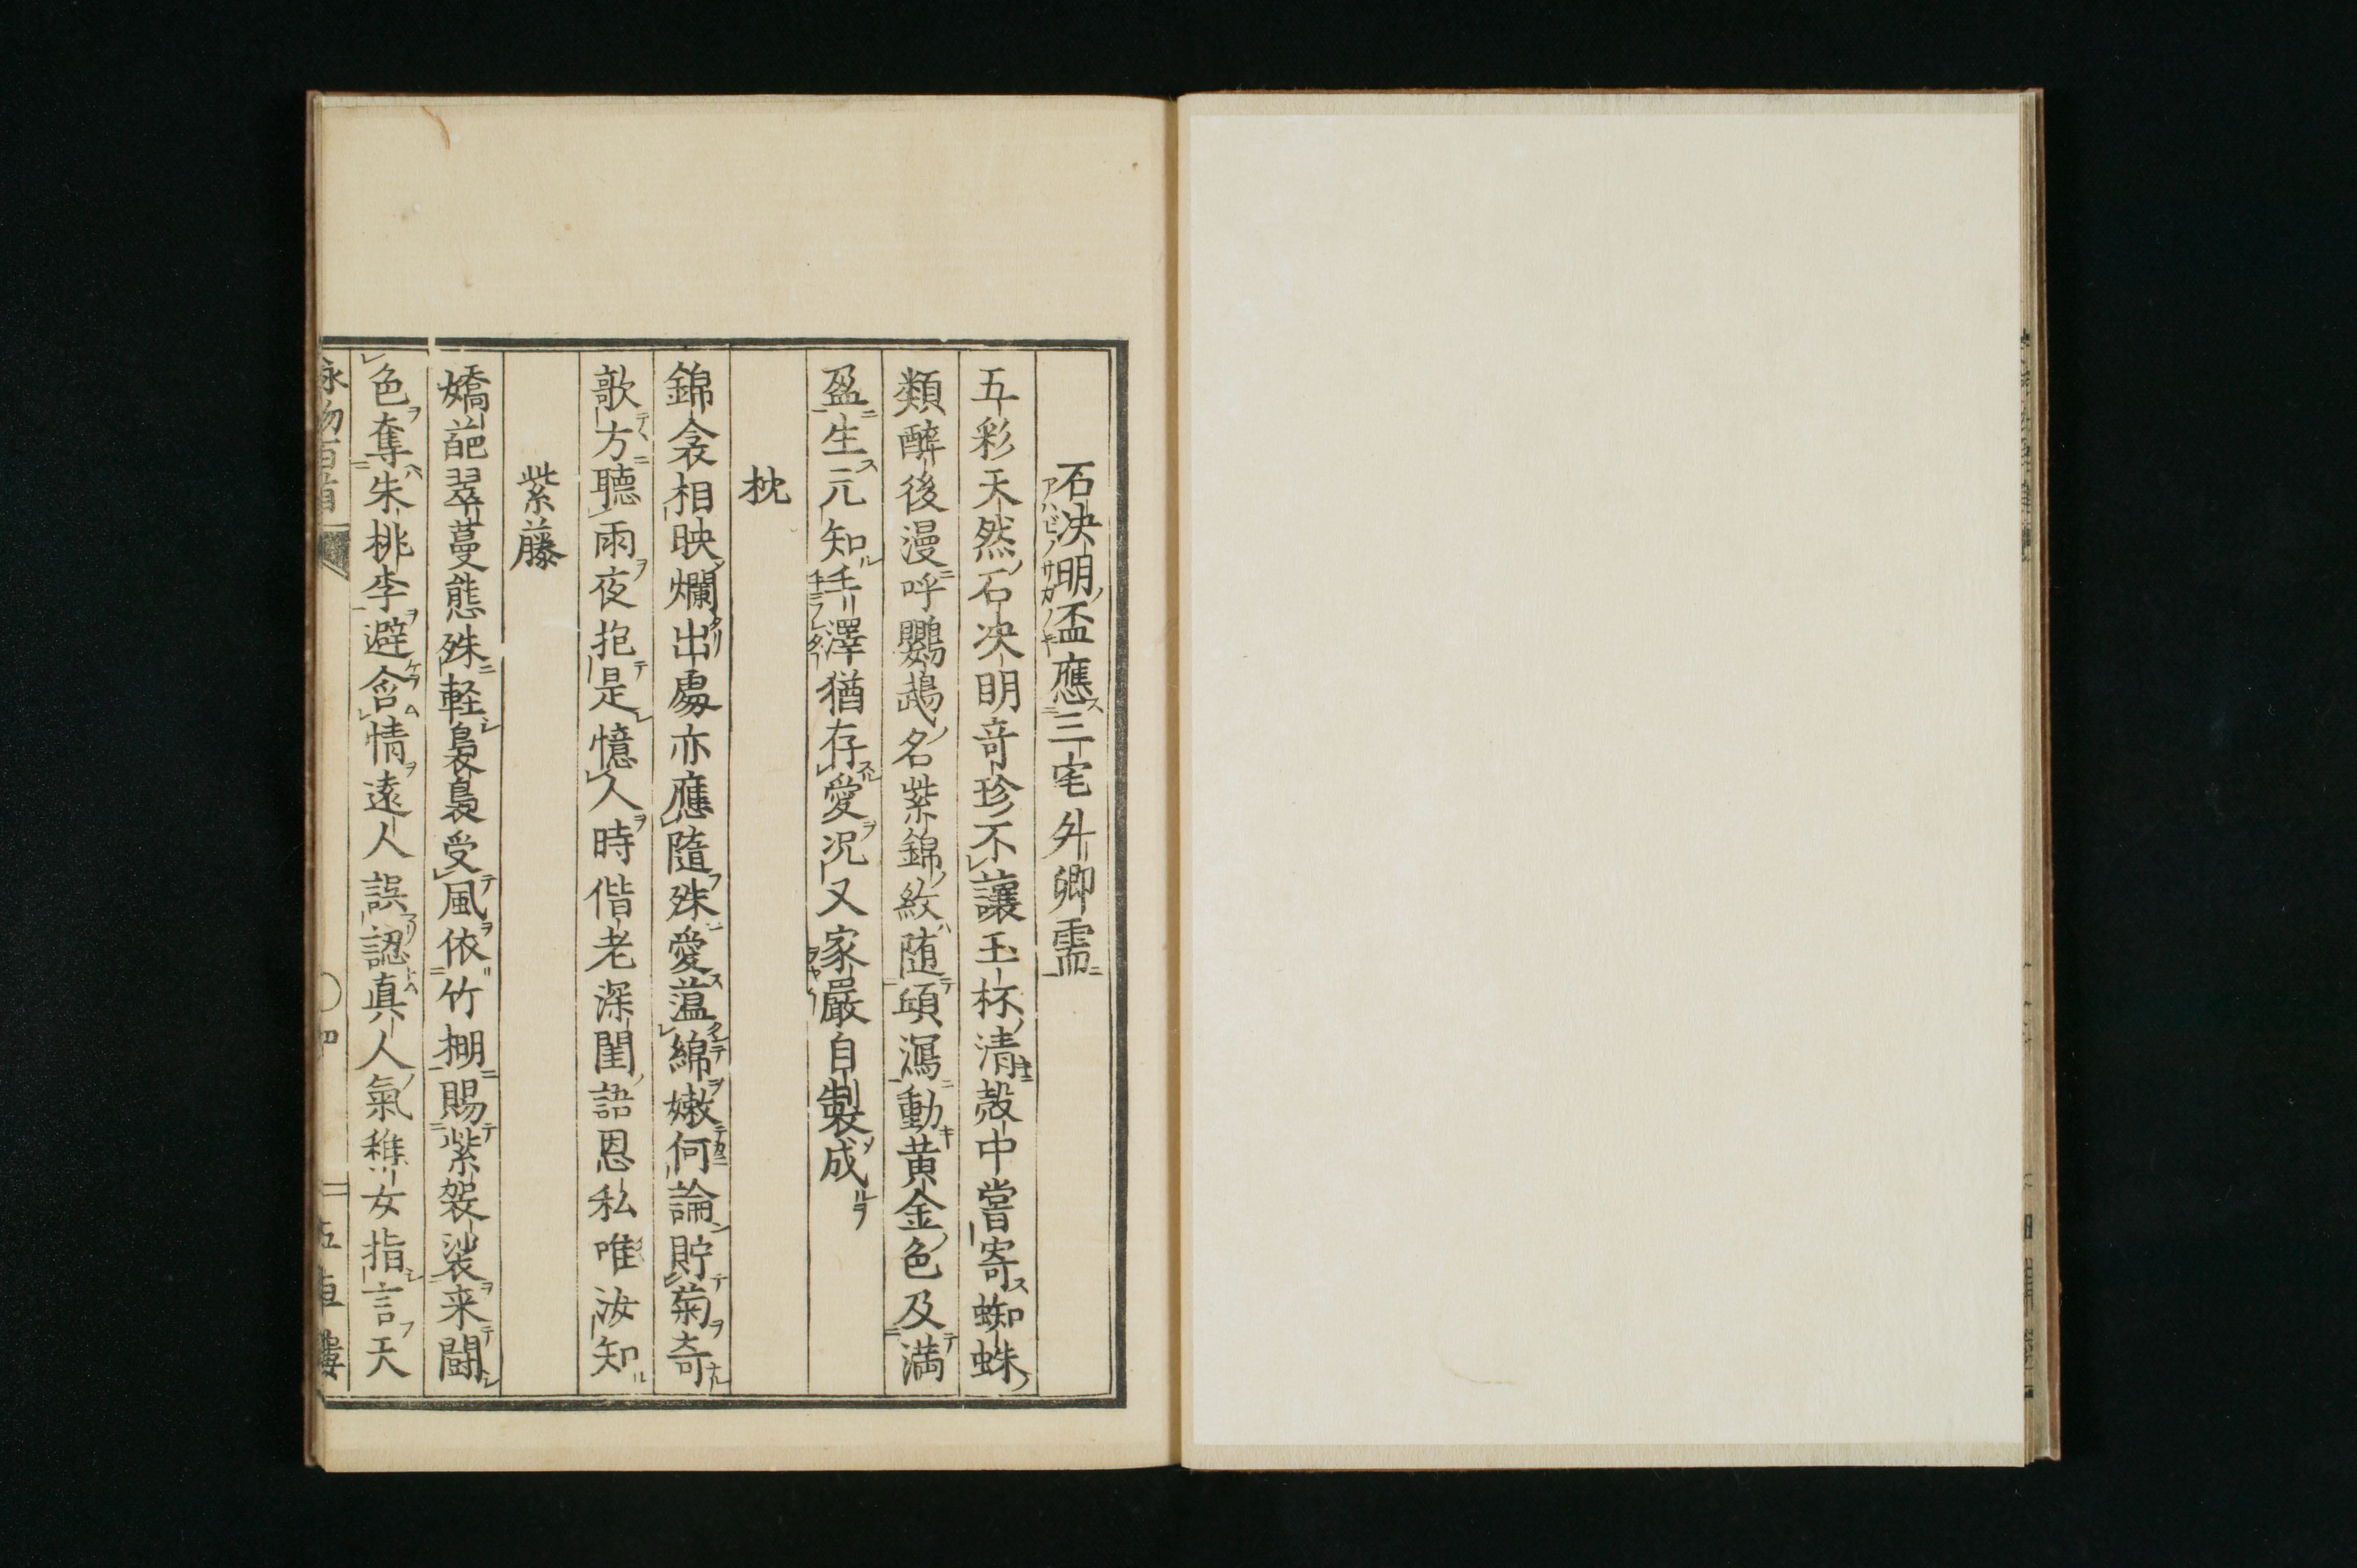 石决明盃應三宅外卿需
五彩天然石决明奇珍不讓玉杯清殻中嘗寄蜘蛛
類醉後漫呼鸚鵡名紫錦紋随傾瀉動黄金色及満
盈生元知手澤猶存愛况又家嚴自製成
枕
錦衾相映爛出處亦應隨殊愛薀綿嫩何論貯菊奇
歌方聽雨夜抱是憶人時偕老深閨語恩私唯汝知
紫藤
嬌葩翠蔓態殊軽裊裊受風依竹棚賜紫袈裟来闘
色奪朱桃李避含情遠人誤認真人氣稚女指言天
詠物百首